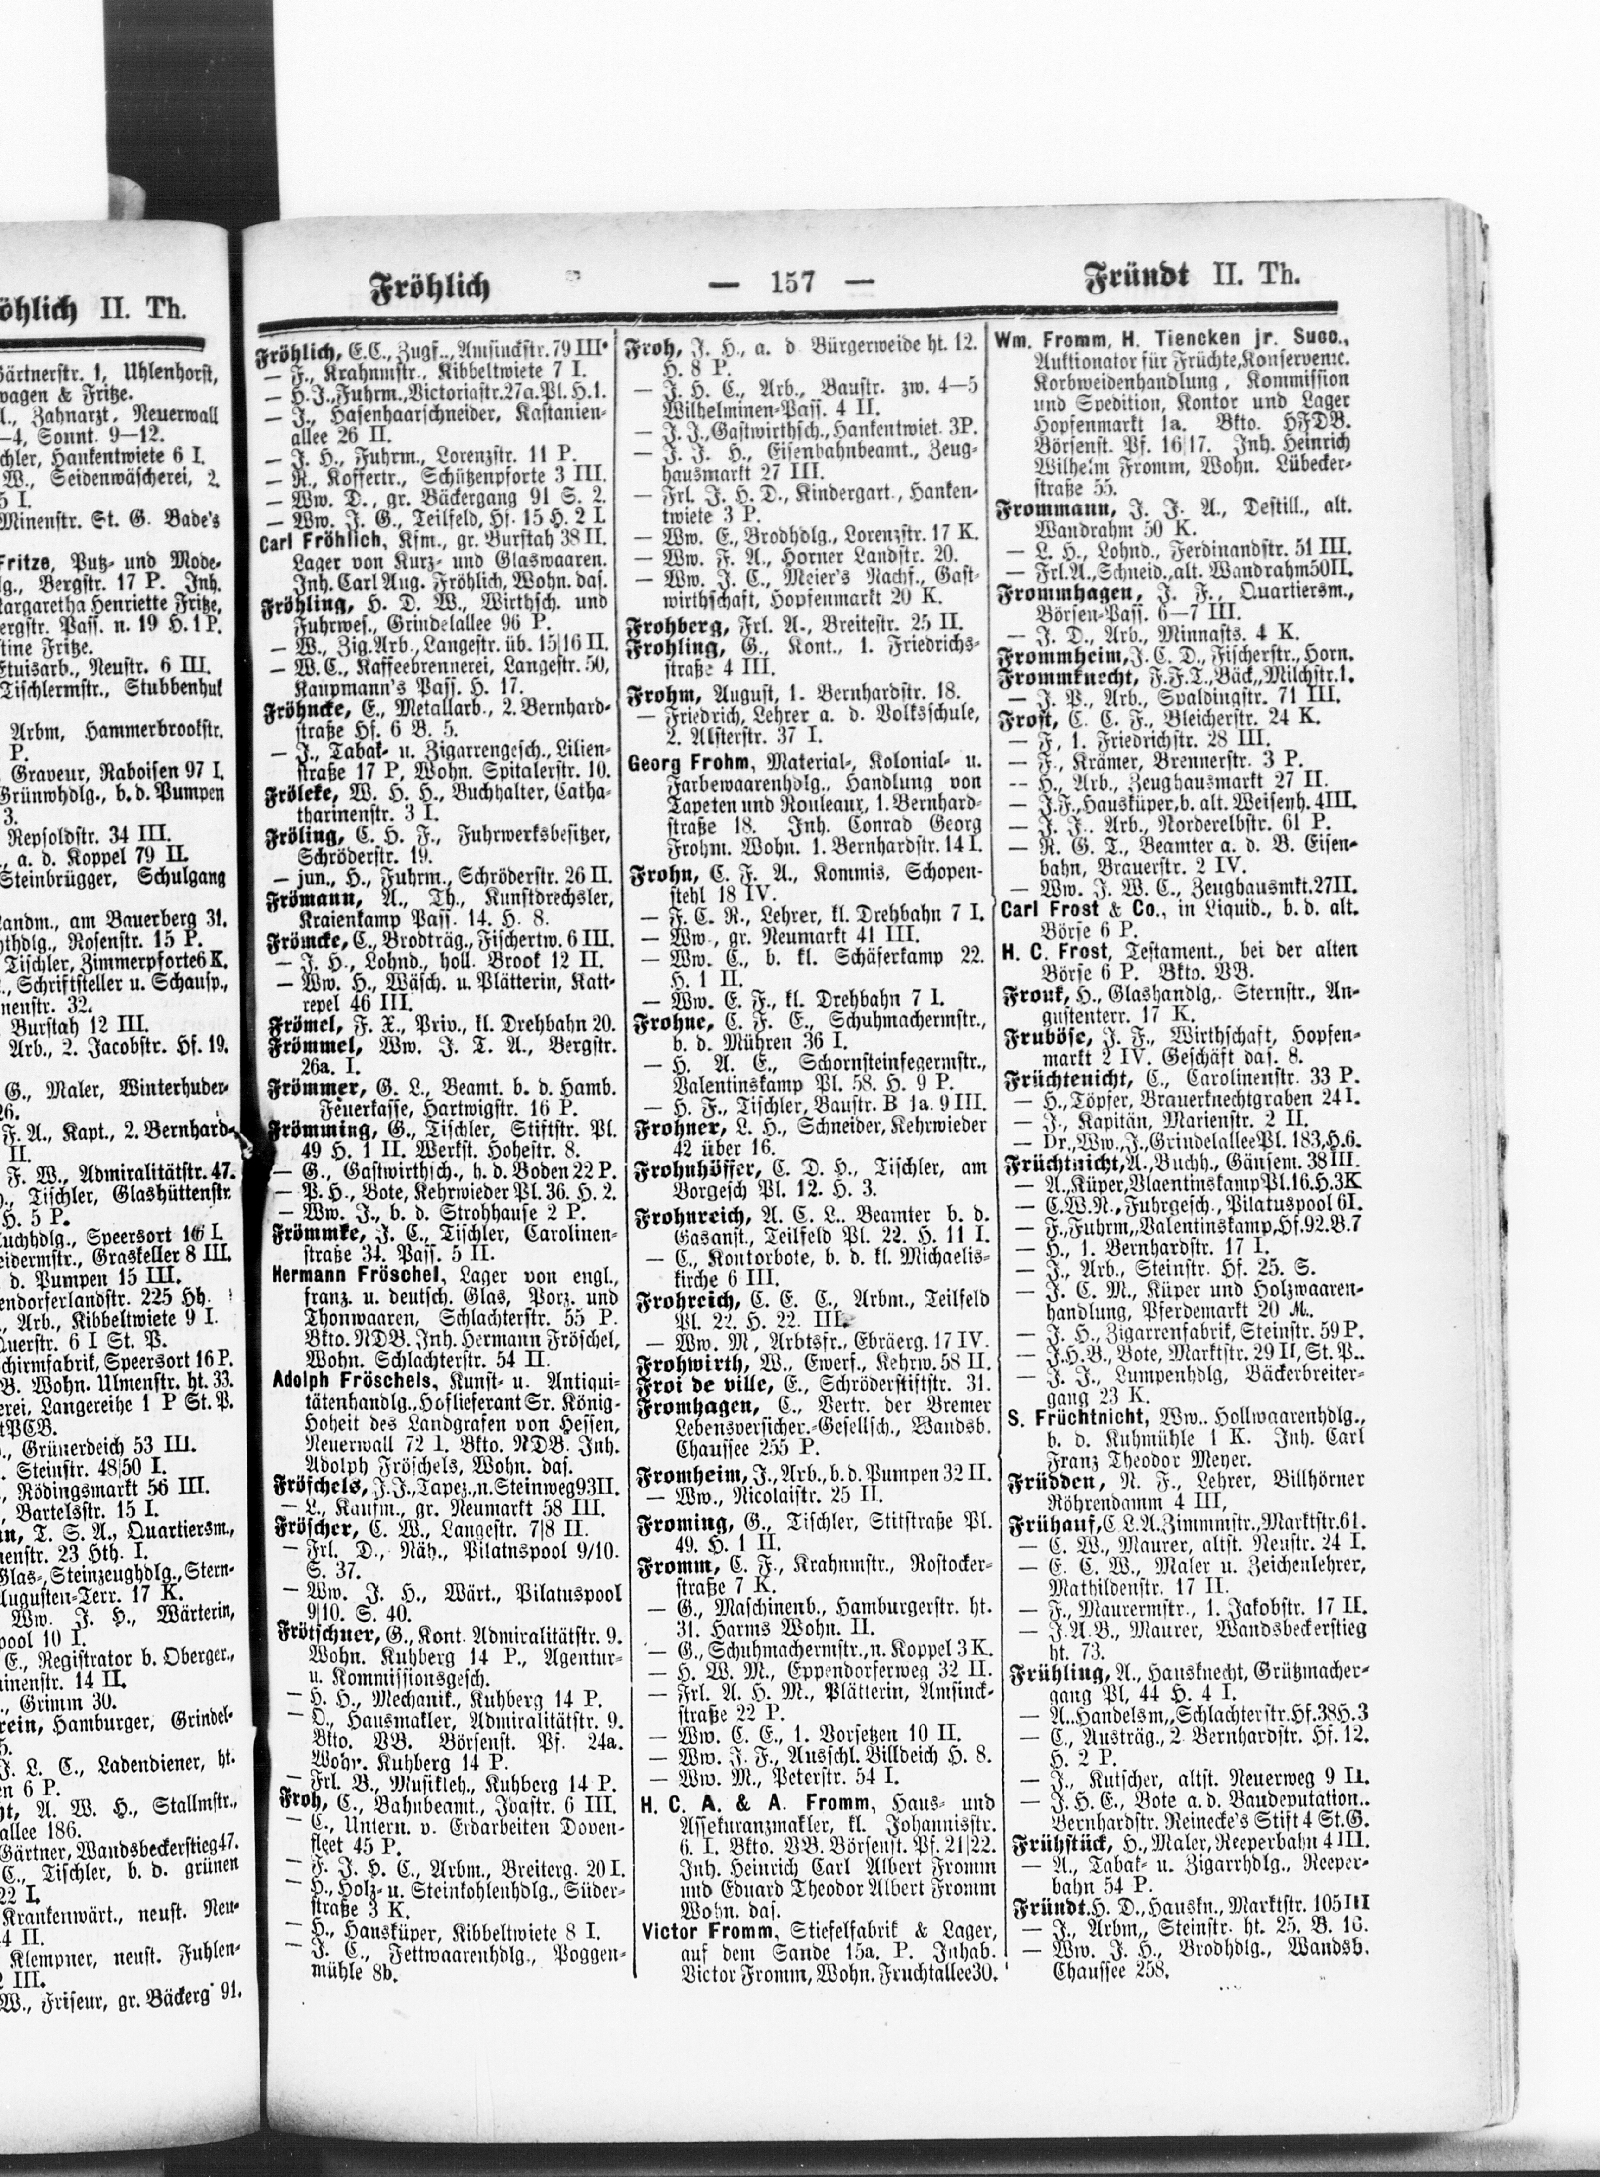 öhlich II. Th.
Gärtnerstr. 1, Uhlenhorst,
wagen & Fritze.
Zahnarzt, Neuerwall
—4, Sonnt. 9—12.
chler, Hankentwiete 6 I.
W., Seidenwäscherei, 2.
5 I.
Minenstr. St. G. Bade's
Fritze, Putz- und Mode-
lg., Bergstr. 17 P. Inh.
Margaretha Henriette Fritze,
ergstr. Pass. n. 19 H. 1 P.
stine Fritze.
Etuisarb., Neustr. 6 III.
Tischlermstr., Stubbenhuk
Arbm, Hammerbrookstr.
P.
Graveur, Raboisen 97 I.
Grünwhdlg., b. d. Pumpen
3.
Repsoldstr. 34 III.
a. d. Koppel 79 II.
Steinbrügger, Schulgang
Landm., am Bauerberg 31.
othdlg., Rosenstr. 15 P.
Tischler, Zimmerpforte 6 K.
Schriftsteller u. Schausp.,
nenstr. 32.
Burstah 12 III.
Arb., 2. Jacobstr. Hf. 19.
G., Maler, Winterhuder-
26.
F. A., Kapt., 2. Bernhard-
II.
F. W., Admiralitätstr. 47.
Tischler, Glashüttenstr.
H. 5 P.
Buchhdlg., Speersort 16 I.
eidermstr., Graskeller 8 III.
d. Pumpen 15 III.
endorferlandstr. 225 Hh.
Arb., Kibbeltwiete 9 I.
Querstr. 6 I St. P.
chirmfabrik, Speersort 16 P.
B. Wohn. Ulmenstr. ht. 33.
erei, Langereihe 1 P St. P.
tPCB.
Grünerdeich 53 III.
Steinstr. 48/50 I.
Rödingsmarkt 56 III.
Bartelsstr. 15 I.
nn, T. S. A., Quartiersm.,
nenstr. 23 Hth. I.
Glas-, Steinzeughdlg., Stern-
Augusten-Terr. 17 K.
Ww. J. H., Wärterin,
pool 10 I.
E., Registrator b. Oberger.,
inenstr. 14 II.
Grimm 30.
rein, Hamburger, Grindel-
5.
J. L. C., Ladendiener, ht.
en 6 P.
ht, A. W. H., Stallmstr.,
allee 186.
Gärtner, Wandsbeckerstieg 47.
C., Tischler, b. d. grünen
22 I.
Krankenwärt., neust. Neu-
4 II.
Klempner, neust. Fuhlen-
2 III.
W., Friseur, gr. Bäckerg 91.
Fröhlich — 157 — Fründt II. Th.
Fröhlich, E.C., Zugf.., Amsinckstr. 79 III.
— F., Krahnmstr., Kibbeltwiete 7 I.
— H. J., Fuhrm., Victoriastr. 27a. Pl. H. 1.
— J., Hasenhaarschneider, Kastanien-
allee 26 II.
— J. H., Fuhrm., Lorenzstr. 11 P.
— R., Koffertr., Schützenpforte 3 III.
— Ww. D., gr. Bäckergang 91 S. 2.
— Ww. J. G., Teilfeld, Hf. 15 H. 2 I.
Carl Fröhlich, Kfm., gr. Burstah 38 II.
Lager von Kurz- und Glaswaaren.
Inh. Carl Aug. Fröhlich, Wohn. das.
Fröhling, H. D. W., Wirthsch. und
Fuhrwes., Grindelallee 96 P.
— W., Zig. Arb., Langestr. üb. 15/16 II.
— W. C., Kaffeebrennerei, Langestr. 50,
Kaupmann's Pass. H. 17.
Fröhncke, E., Metallarb., 2. Bernhard-
straße Hf. 6 B. 5.
— J., Tabak- u. Zigarrengesch., Lilien-
straße 17 P, Wohn. Spitalerstr. 10.
Fröleke, W. H. H., Buchhalter, Catha-
tharinenstr. 3 I.
Fröling, C. H. F., Fuhrwerksbesitzer,
Schröderstr. 19.
— jun., H., Fuhrm., Schröderstr. 26 II.
Frömann, A., Th., Kunstdrechsler,
Kraienkamp Pass. 14. H. 8.
Frömcke, C., Brodträg., Fischertw. 6 III.
— J. H., Lohnd., holl. Brook 12 II.
— Ww. H., Wäsch. u. Plätterin, Katt-
repel 46 III.
Frömel, F. X., Priv., kl. Drehbahn 20.
Frömmel, Ww. J. T. A., Bergstr.
26a. I.
Frömmer, G. L., Beamt. b. d. Hamb.
Feuerkasse, Hartwigstr. 16 P.
Frömming, G., Tischler, Stiftstr. Pl.
49 H. 1 II. Werkst. Hohestr. 8.
— G., Gastwirthsch., h. d. Boden 22 P.
— P. H., Bote, Kehrwieder Pl. 36. H. 2.
— Ww. J., b. d. Strohhause 2 P.
Frömmke, J. C., Tischler, Carolinen-
straße 34. Pass. 5 II.
Hermann Fröschel, Lager von engl.,
franz. u. deutsch. Glas, Porz. und
Thonwaaren, Schlachterstr. 55 P.
Bkto. NDB. Inh. Hermann Fröschel,
Wohn. Schlachterstr. 54 II.
Adolph Fröschels, Kunst- u. Antiqui-
tätenhandlg., Hoflieferant Sr. König-
Hoheit des Landgrafen von Hessen,
Neuerwall 72 I. Bkto. NDB. Inh.
Adolph Fröschels, Wohn. das.
Fröschels, J. J., Tapez., n. Steinweg 93 II.
— L., Kaufm., gr. Neumarkt 58 III.
Fröscher, C. W., Langestr. 7/8 II.
— Frl. D., Näh., Pilatnspool 9/10.
S. 37.
— Ww. J. H., Wärt., Pilatuspool
9/10. S. 40.
Frötschner, G., Kont. Admiralitätstr. 9.
Wohn. Kuhberg 14 P., Agentur-
u. Kommissionsgesch.
— H. H., Mechanik., Kuhberg 14 P.
— O., Hausmakler, Admiralitätstr. 9.
Bkto. VB. Börsenst. Pf. 24a.
Wohr. Kuhberg 14 P.
— Frl. B., Musikleh., Kuhberg 14 P.
Froh, C., Bahnbeamt., Idastr. 6 III.
— C., Untern. v. Erdarbeiten Doven-
fleet 45 P.
— F. J. H. C., Arbm., Breiterg. 20 I.
— H., Holz- u. Steinkohlenhdlg., Süder-
straße 3 K.
— H., Hausküper, Kibbeltwiete 8 I.
— J. C., Fettwaarenhdlg., Poggen-
mühle 8b.
Froh, J. H., a. d Bürgerweide ht. 12.
H. 8 P.
— J. H. C., Arb., Baustr. zw. 4—5
Wilhelminen-Pass. 4 II.
— J. J., Gastwirthsch., Hankentwiet. 3P.
— J. J. H., Eisenbahnbeamt., Zeug-
hausmarkt 27 III.
— Frl. J. H. D., Kindergart., Hanken-
twiete 3 P.
— Ww. E., Brodhdlg., Lorenzstr. 17 K.
— Ww. F. A., Horner Landstr. 20.
— Ww. J. C., Meier's Nachf., Gast-
wirthschaft, Hopfenmarkt 20 K.
Frohberg, Frl. A., Breitestr. 25 II.
Frohling, G., Kont., 1. Friedrichs-
straße 4 III.
Frohm, August, 1. Bernhardstr. 18.
— Friedrich, Lehrer a. d. Volksschule,
2. Alsterstr. 37 I.
Georg Frohm, Material-, Kolonial- u.
Farbewaarenhdlg., Handlung von
Tapeten und Rouleaux, 1. Bernhard-
straße 18. Inh. Conrad Georg
Frohm. Wohn. 1. Bernhardstr. 14 I.
Frohn, C. F. A., Kommis, Schopen-
stehl 18 IV.
— F. C. R., Lehrer, kl. Drehbahn 7 I.
— Ww., gr. Neumarkt 41 III.
— Ww. C., b. kl. Schäferkamp 22.
H. 1 II.
— Ww. E. F., kl. Drehbahn 7 I.
Frohne, C. F. E., Schuhmachermstr.,
b. d. Mühren 36 I.
— H. A. E., Schornsteinfegermstr.,
Valentinskamp Pl. 58. H. 9 P.
— H. F., Tischler, Baustr. B 1a. 9 III.
Frohner, L. H., Schneider, Kehrwieder
42 über 16.
Frohnhöffer, C. D. H., Tischler, am
Borgesch Pl. 12. H. 3.
Frohnreich, A. C. L., Beamter b. d.
Gasanst., Teilfeld Pl. 22. H. 11 I.
— C., Kontorbote, b. d. kl. Michaelis-
kirche 6 III.
Frohreich, C. E. C., Arbm., Teilfeld
Pl. 22. H. 22. III.
— Ww. M, Arbtsfr., Ebräerg. 17 IV.
Frohwirth, W., Ewerf., Kehrw. 58 II.
Froi de ville, E., Schröderstiftstr. 31.
Fromhagen, C., Vertr. der Bremer
Lebensversicher.-Gesellsch., Wandsb.
Chaussee 255 P.
Fromheim, J., Arb., b. d. Pumpen 32 II.
— Ww., Nicolaistr. 25 II.
Froming, G., Tischler, Stitstraße Pl.
49. H. 1 II.
Fromm, C. F., Krahnmstr., Rostocker-
straße 7 K.
— G., Maschinenb., Hamburgerstr. ht.
31. Harms Wohn. II.
— G., Schuhmachermstr., n. Koppel 3 K.
— H. W. M., Eppendorferweg 32 II.
— Frl. A. H. M., Plätterin, Amsinck-
straße 22 P.
— Ww. C. E., 1. Vorsetzen 10 II.
— Ww. J. F., Ausschl. Billdeich H. 8.
— Ww. M., Peterstr. 54 I.
H. C. A. & A. Fromm, Haus- und
Assekuranzmakler, kl. Johannisstr.
6. I. Bkto. VB. Börsenst. Pf. 21/22.
Inh. Heinrich Carl Albert Fromm
und Eduard Theodor Albert Fromm
Wohn. das.
Victor Fromm, Stiefelfabrik & Lager,
auf dem Sande 15a. P. Inhab.
Victor Fromm, Wohn. Fruchtallee 30.
Wm. Fromm, H. Tiencken jr. Succ.,
Auktionator für Früchte, Konserven 2c.
Korbweidenhandlung, Kommission
und Spedition, Kontor und Lager
Hopfenmarkt 1a. Bkto. HFDB.
Börsenst. Pf. 16/17. Inh. Heinrich
Wilhelm Fromm, Wohn. Lübecker-
straße 55.
Frommann, J. J. A., Destill., alt.
Wandrahm 50 K.
— L. H., Lohnd., Ferdinandstr. 51 III.
— Frl. A., Schneid., alt. Wandrahm 50 II.
Frommhagen, J. F., Quartiersm.,
Börsen-Pass. 6—7 III.
— J. D., Arb., Minnasts. 4 K.
Frommheim, J. C. D., Fischerstr., Horn.
Frommknecht, F. F. T., Bäck., Milchstr. 1.
— J. P., Arb., Spaldingstr. 71 III.
Frost, C. C. F., Bleicherstr. 24 K.
— F, 1. Friedrichstr. 28 III.
— F., Krämer, Brennerstr. 3 P.
— H., Arb., Zeughausmarkt 27 II.
— J. F., Hausküper, b. alt. Weisenh. 4 III.
— J. J., Arb., Norderelbstr. 61 P.
— R. G. T., Beamter a. d. B. Eisen-
bahn, Brauerstr. 2 IV.
— Ww. J. W. C., Zeughausmkt. 27 II.
Carl Frost & Co., in Liquid., b. d. alt.
Börse 6 P.
H. C. Frost, Testament., bei der alten
Börse 6 P. Bkto. VB.
Frouk, H., Glashandlg,. Sternstr., Au-
gustenterr. 17 K.
Fruböse, J. F., Wirthschaft, Hopfen-
markt 2 IV. Geschäft das. 8.
Früchtenicht, C., Carolinenstr. 33 P.
— H., Töpfer, Brauerknechtgraben 24 I.
— J., Kapitän, Marienstr. 2 II.
— Dr., Ww., J., Grindelallee Pl. 183, H. 6.
Früchtnicht, A., Buchh., Gänsem. 38 III.
— A., Küper, Vlaentinskamp Pl. 16. H. 3 K
— C. W. N., Fuhrgesch., Pilatuspool 6 I.
— F., Fuhrm., Valentinskamp, Hf. 92. B. 7
— H., 1. Bernhardstr. 17 I.
— J., Arb., Steinstr. Hf. 25. S.
— J. C. M., Küper und Holzwaaren-
handlung, Pferdemarkt 20 M.
— J. H., Zigarrenfabrik, Steinstr. 59 P.
— J. H. B., Bote, Marktstr. 29 II, St. P..
— J. J., Lumpenhdlg, Bäckerbreiter-
gang 23 K.
S. Früchtnicht, Ww.. Hollwaarenhdlg.,
b. d. Kuhmühle 1 K. Inh. Carl
Franz Theodor Meyer.
Früdden, N. F., Lehrer, Billhörner
Röhrendamm 4 III,
Frühauf, C. L. A. Zimmmstr., Marktstr. 61.
— C. W., Maurer, altst. Neustr. 24 I.
— E. C. W., Maler u. Zeichenlehrer,
Mathildenstr. 17 II.
— F., Maurermstr., 1. Jakobstr. 17 II.
— J. A. B., Maurer, Wandsbeckerstieg
ht. 73.
Frühling, A., Hausknecht, Grützmacher-
gang Pl, 44 H. 4 I.
— A.. Handelsm., Schlachterstr. Hf. 38 H. 3
— C., Austräg., 2 Bernhardstr. Hf. 12.
H. 2 P.
— J., Kutscher, altst. Neuerweg 9 II.
— J. H. E., Bote a. d. Baudeputation..
Bernhardstr. Reinecke's Stift 4 St. G.
Frühstück, H., Maler, Reeperbahn 4 III.
— A., Tabak- u. Zigarrhdlg., Reeper-
bahn 54 P.
Fründt. H. D., Hauskn., Marktstr. 105 III
— J., Arbm,, Steinstr. ht. 25. B. 16.
— Ww. J. H., Brodhdlg., Wandsb.
Chaussee 258.